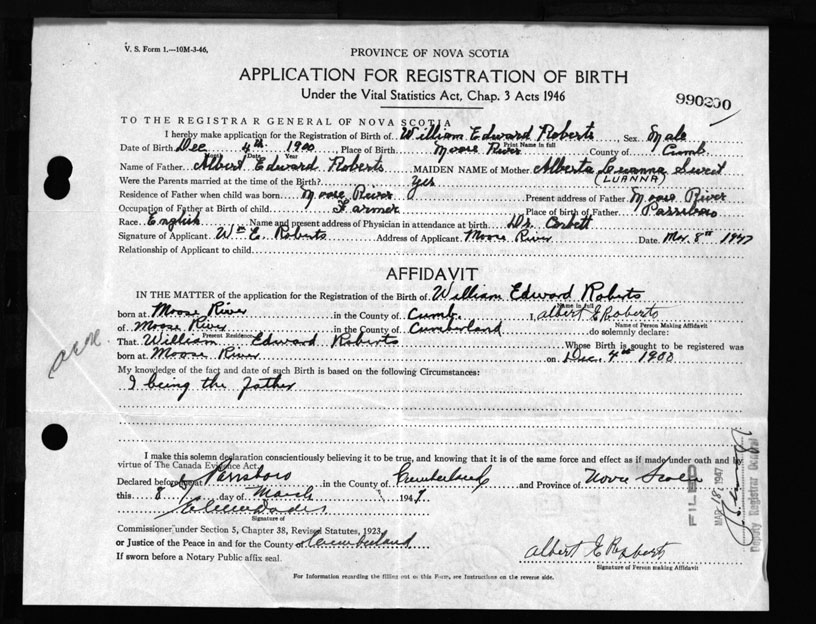 V. S. Form 1.—10M-3-46.
PROVINCE OF NOVA SCOTIA
APPLICATION FOR REGISTRATION OF BIRTH
Under the Vital Statistics Act, Chap. 3 Acts 1946
990200
TO THE REGISTRAR GENERAL OF NOVA SCOTIA
I hereby make application for the Registration of Birth of William Edward Roberts Sex Male
Print Name in full
Date of Birth Dec 4th 1900 Place of Birth Moose River County of Cumb.
Month Date Year
Name of Father Albert Edward Roberts MAIDEN NAME of Mother Alberta Luanna
(LUANNA)
Were the Parents married at time of the Birth? Yes
Residence of Father when child was born Moose River Present address of Father Moose River
Occupation of Father at Birth of child Farmer Place of birth of Father Parrsboro
Race English Name and present address of Physician in attendance at birth Dr. Corbett
Signature of Applicant Wm E. Roberts Address of Applicant Moose River Date Mar. 8th 1947
Relationship of Applicant to child
AFFIDAVIT
IN THE MATTER of the application for the Registration of the Birth of William Edward Roberts
Name in full
born at Moose River in the County of Cumb. I, Albert E Roberts
Name of Person Making Affidavit
of Moose River in the County of Cumberland do solemnly declare:
Present Residence
That William Edward Roberts Whose Birth is sought to be registered was
born at Moose River on Dec. 4th 1900
My knowledge of the fact and date of such Birth is based on the following Circumstances:
I being the father
I make this solemn declaration conscientiously believing it to be true, and knowing that it is of the same force and effect as if made under oath and by
virtue of The Canada Evidence Act.
Declared before me at Parrsboro in the County of Cumberland and Province of Nova Scotia
this 8 day of March 1947
Signature of
Commissioner under Section 5, Chapter 38, Revised Statutes, 1923,
or Justice of the Peace in and for the County of Cumberland
If sworn before a Notary Public affix seal.
Albert E Roberts
Signature of Person making Affidavit
For Information regarding the filling out of this Form, see Instructions on the reverse side.
FILED
MAR 18 1947
Deputy Registrar General